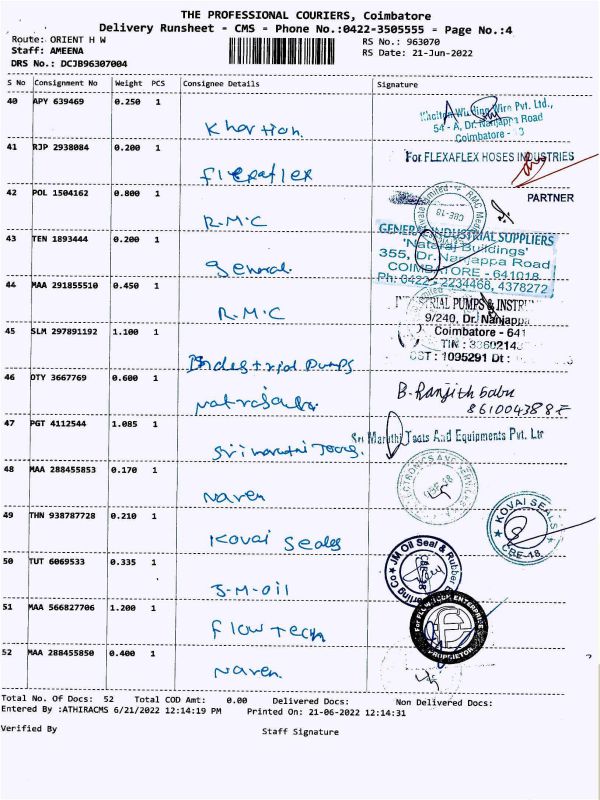 THE PROFESSIONAL COURIERS, Coimbatore
Delivery Runsheet - CMS - Phone No.:0422-3505555 - Page No.:4
Route: ORIENT H W
RS No.: 963070
Staff: AMEENA
RS Date: 21-Jun-2022
DRS No.: DCJB96307004
S No Consignment No Weight PCS Consignee Details Signature
40 APY 639469 0.250 1
Winding Wire Pvt. Ltd.,
54 - A, Dr. Nanjappa Road
Coimbatore -
41 RJP 2938084 0.200 1
For FLEXAFLEX HOSES INDUSTRIES
PARTNER
42 POL 1504162 0.800 1
R.M.C
CBE-18
43 TEN 1893444 0.200 1
General
GENERAL INDUSTRIAL SUPPLIERS
'Nataraj Buildings'
355, Dr. Nanjappa Road
COIMBATORE - 641018
Ph: 0422 - 2234468, 4378272
44 MAA 291855510 0.450 1
R.M.C
INDUSTRIAL PUMPS & INSTRU
9/240, Dr. Nanjappa
Coimbatore - 641
TIN : 3360214
CST : 1095291 Dt :
45 SLM 297891192 1.100 1
Industrial Pumps
46 OTY 3667769 0.600 1
B. Ranjith babu
47 PGT 4112544 1.085 1
Sri Maruthi Tools And Equipments Pvt. Ltd
48 MAA 288455853 0.170 1
Naren
CBE-18
49 THN 938787728 0.210 1
Kovai Seals
KOVAI SEALS
CBE-18
50 TUT 6069533 0.335 1
J.M.Oil
JM Oil Seal & Rubber
CBE-18
51 MAA 566827706 1.200 1
Flowtech
For FLOWTECH ENTERPRISE
PROPRIETOR
52 MAA 288455850 0.400 1
Naren
Total No. Of Docs: 52 Total COD Amt: 0.00 Delivered Docs: Non Delivered Docs:
Entered By :ATHIRACMS 6/21/2022 12:14:19 PM Printed On: 21-06-2022 12:14:31
Verified By Staff Signature